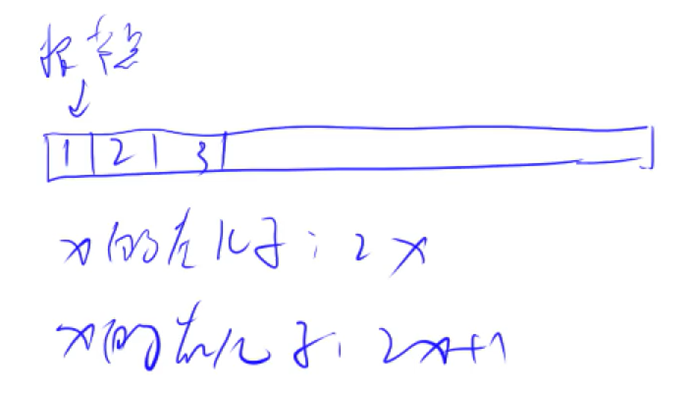 根节点
1 2 3
x的左儿子：2x
x的右儿子：2x+1